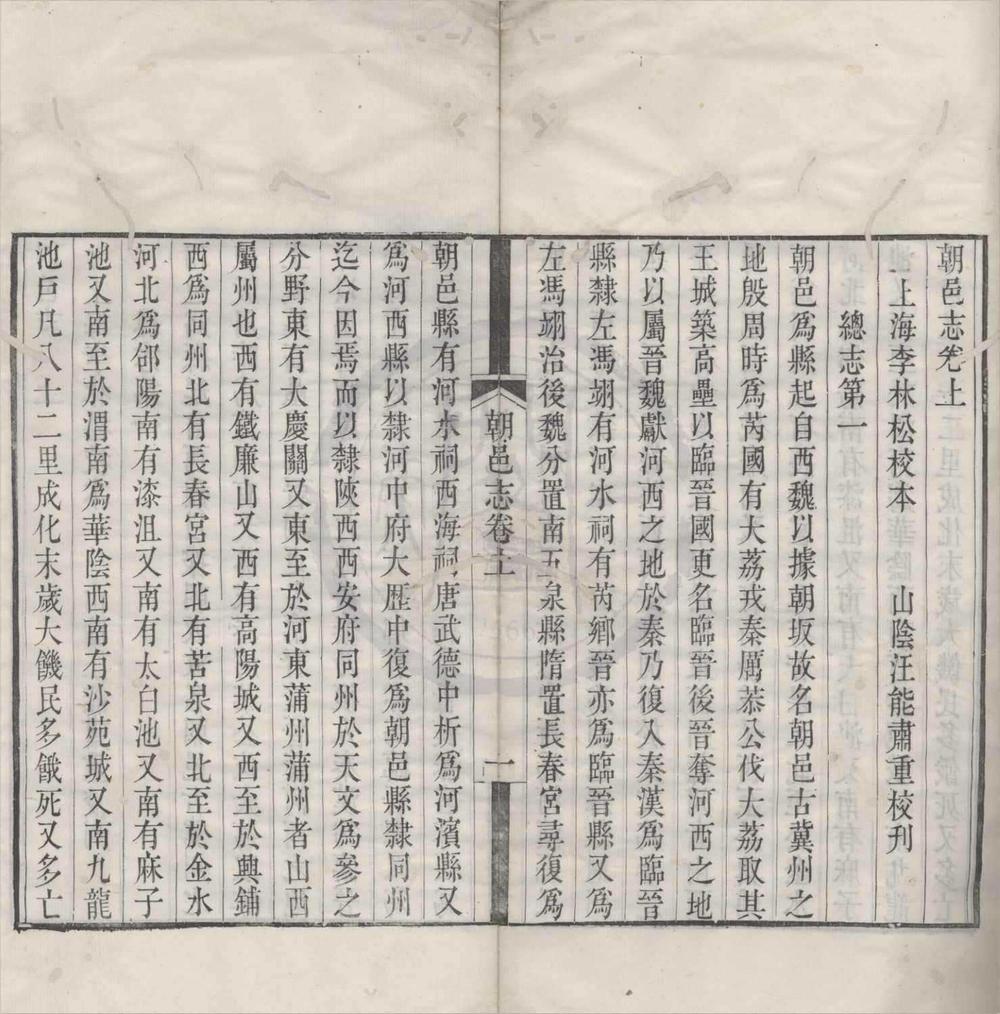 朝邑志卷上
上海李林松校本　山陰汪能肅重校刊
總志第一
朝邑爲縣起自西魏以據朝坂故名朝邑古冀州之
地殷周時爲芮國有大荔戎秦厲恭公伐大荔取其
王城築高壘以臨晉國更名臨晉後晉奪河西之地
乃以屬晉魏獻河西之地於秦乃復入秦漢爲臨晉
縣隸左馮翊有河水祠有芮鄉晉亦爲臨晉縣又爲
左馮翊治後魏分置南五泉縣隋置長春宮尋復爲
朝邑志卷上
一
朝邑縣有河水祠西海祠唐武德中析爲河濱縣又
爲河西縣以隸河中府大歷中復爲朝邑縣隸同州
迄今因焉而以隸陝西西安府同州於天文爲參之
分野東有大慶關又東至於河東蒲州蒲州者山西
屬州也西有鐵廉山又西有高陽城又西至於興鋪
西爲同州北有長春宮又北有苦泉又北至於金水
河北爲郃陽南有漆沮又南有太白池又南有麻子
池又南至於渭南爲華陰西南有沙苑城又南九龍
池戸凡八十二里成化末歲大饑民多餓死又多亡